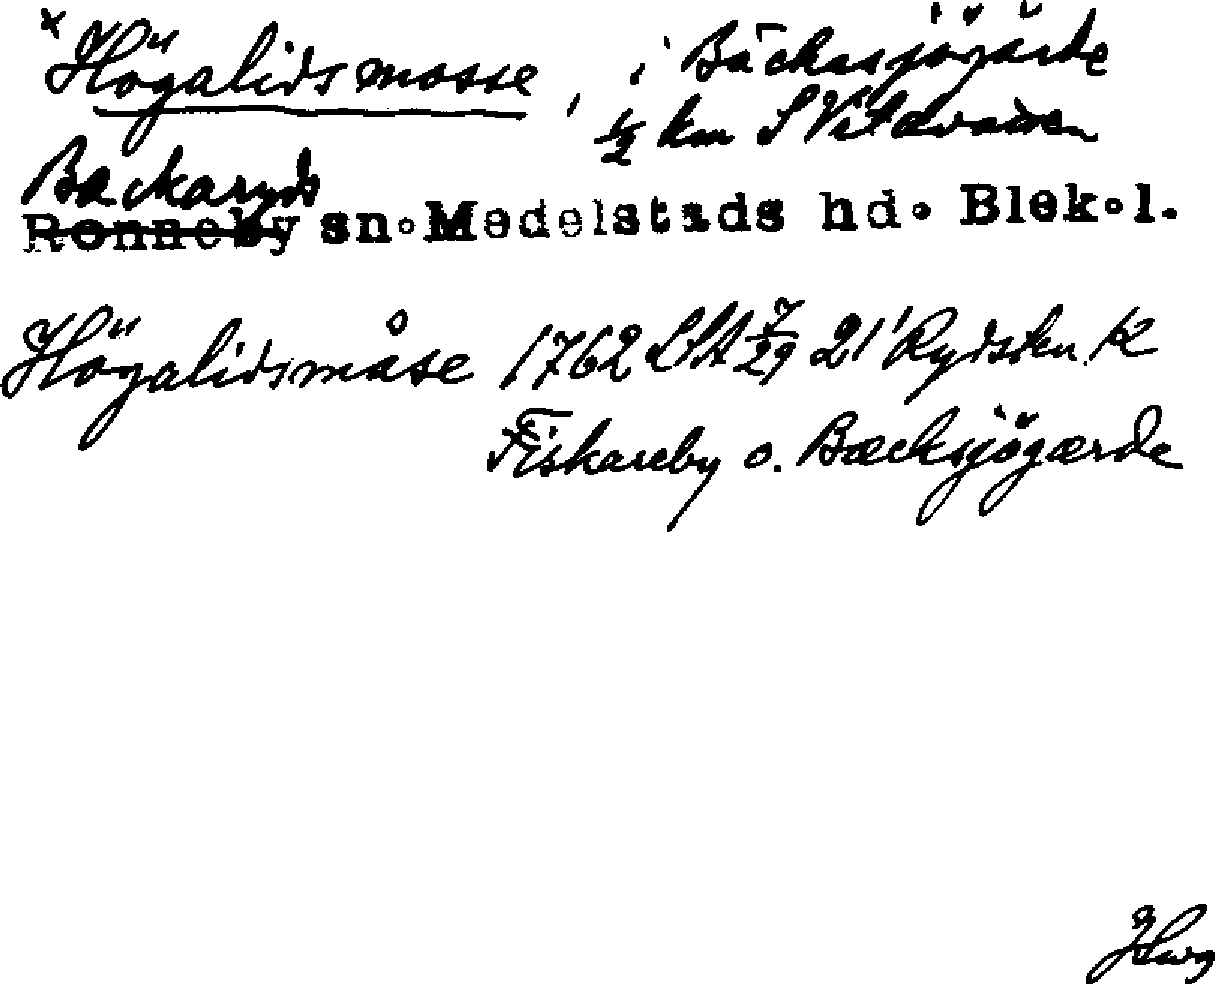 x Högalidsmosse, i Bäcksjögärde
1/2 km S Vita
Backaryds
Ronneby sn. Medelstads hd. Blek. l.
Högalidsmåse 1762 LSA 7/29 21 K
Fiskareby o. Bäcksjögærde